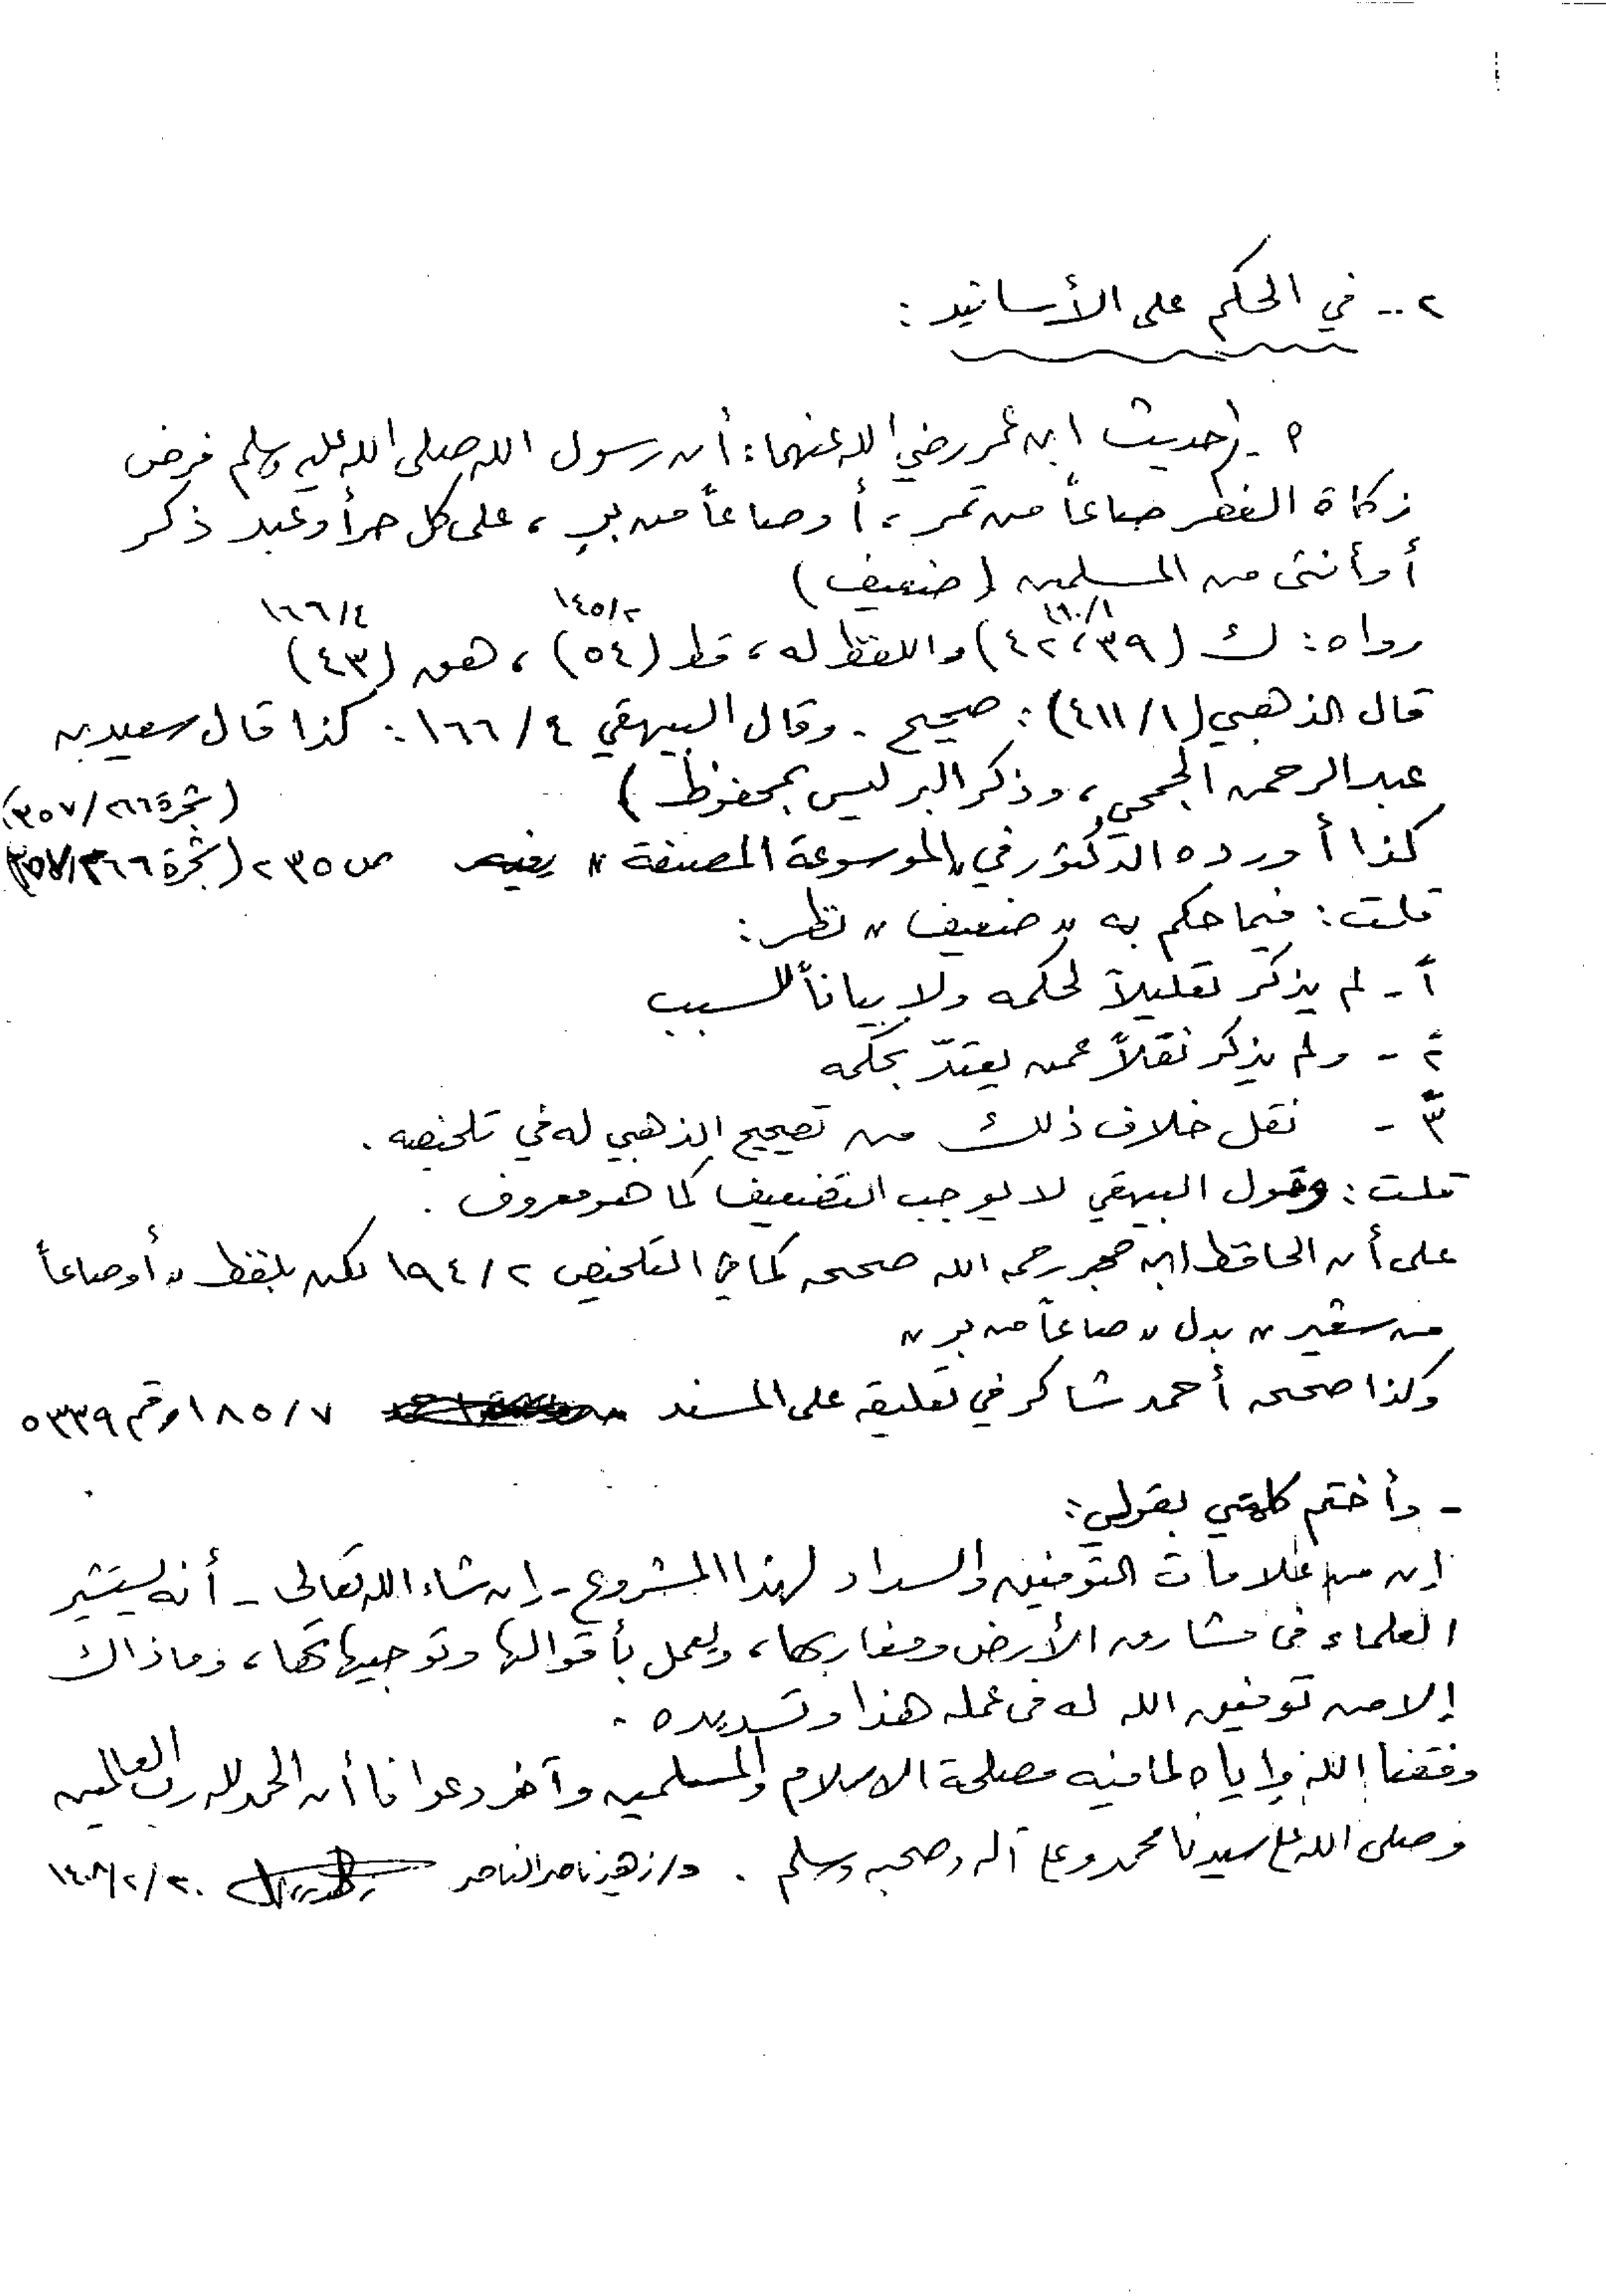 ٢ - في الحكم على الأسانيد :
٩ - (حديث ابن عمر رضي الله عنهما: أن رسول الله صلى الله عليه وسلم فرض
زكاة الفطر صاعاً من تمر، أو صاعاً من بر، على كل حر أو عبد ذكر
أو أنثى من المسلمين (ضعيف)
٤١٠/١ ١٤٥/٢ ١٦٦/٤
رواه: ك (٤٢،٣٩) واللفظ له، قط (٥٤)، هق (٤٣)
قال الذهبي (٤١١/١): صحيح . وقال البيهقي ١٦٦/٤ : كذا قال سعيد بن
عبد الرحمن الجمحي، وذكر البر ليس بمحفوظ)
(شجرة ٣٥٧/٢٦٦)
كذا أورده الدكتور في "الموسوعة المصنفة" ص ٢٣٥ (شجرة
قلت: فيما حكم به "ضعيف" نظر:
١ - لم يذكر تعليلاً لحكمه ولا بياناً للسبب
٢ - ولم يذكر نقلاً عمن يعتدّ بحكمه
٣ - نقل خلاف ذلك من تصحيح الذهبي له في تلخيصه .
قلت: وقول البيهقي لا يوجب التضعيف كما هو معروف .
على أن الحافظ ابن حجر رحمه الله صححه كما في التلخيص ١٩٤/٢ لكن بلفظ "أو صاعاً
من شعير" بدل "صاعاً من بر"
وكذا صححه أحمد شاكر في تعليقه على المسند ١٨٥/٧ رقم ٥٣٣٩
- وأختم كلمتي بقولي:
إن من علامات التوفيق والسداد لهذا المشروع - إن شاء الله تعالى - أنه يستشير
العلماء في مشارق الأرض ومغاربها، ويعمل بأقوالها وتوجيهاتها، وما ذاك
إلا من توفيق الله له في عمله هذا وتسديده .
وفقنا الله وإياه لما فيه مصلحة الاسلام والمسلمين وآخر دعوانا أن الحمد لله رب العالمين
وصلى الله على سيدنا محمد وعلى آله وصحبه وسلم . د/ زهير ناصر الناصر ١٤٠٨/٢/٢٠